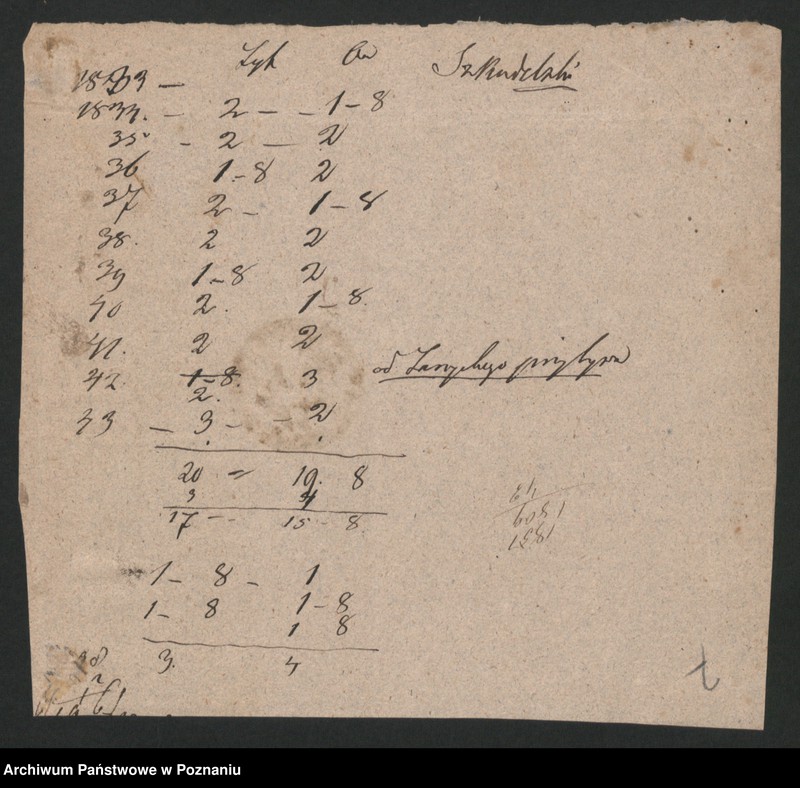 Żyt Ow Szkudelski
1833 —
1834. — 2 — — 1 — 8
35 — 2 — 2
36 1 — 8 2
37 2 — 1 — 8
38. 2 2
39 1 — 8 2
40 2. 1 — 8.
41. 2 2
42. 1 — 8. 3 od
2.
43 — 3 — — 2
20 = 19. 8
3 4
17 — 15 — 8.
43
1809
1831
1 — 8 — 1
1 — 8 1 — 8
1 8
3. 4
Archiwum Państwowe w Poznaniu